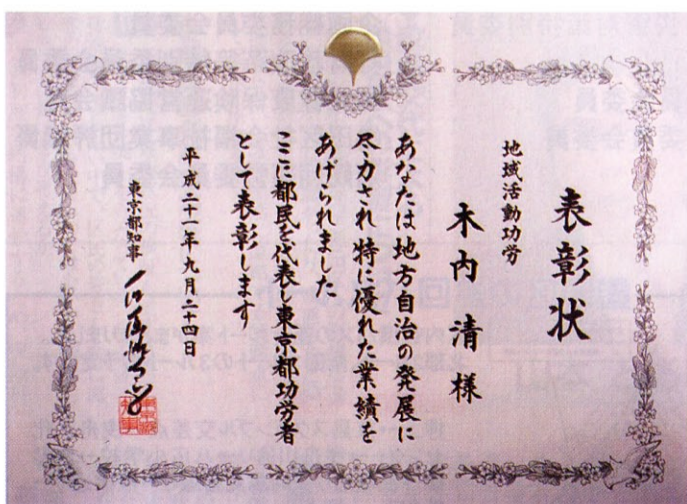 表彰状
地域活動功労
木内 清 様
あなたは地方自治の発展に
尽力され特に優れた業績を
あげられました
ここに都民を代表し東京都功労者
として表彰します
平成二十一年 九月二十四日
東京都知事 石原慎太郎